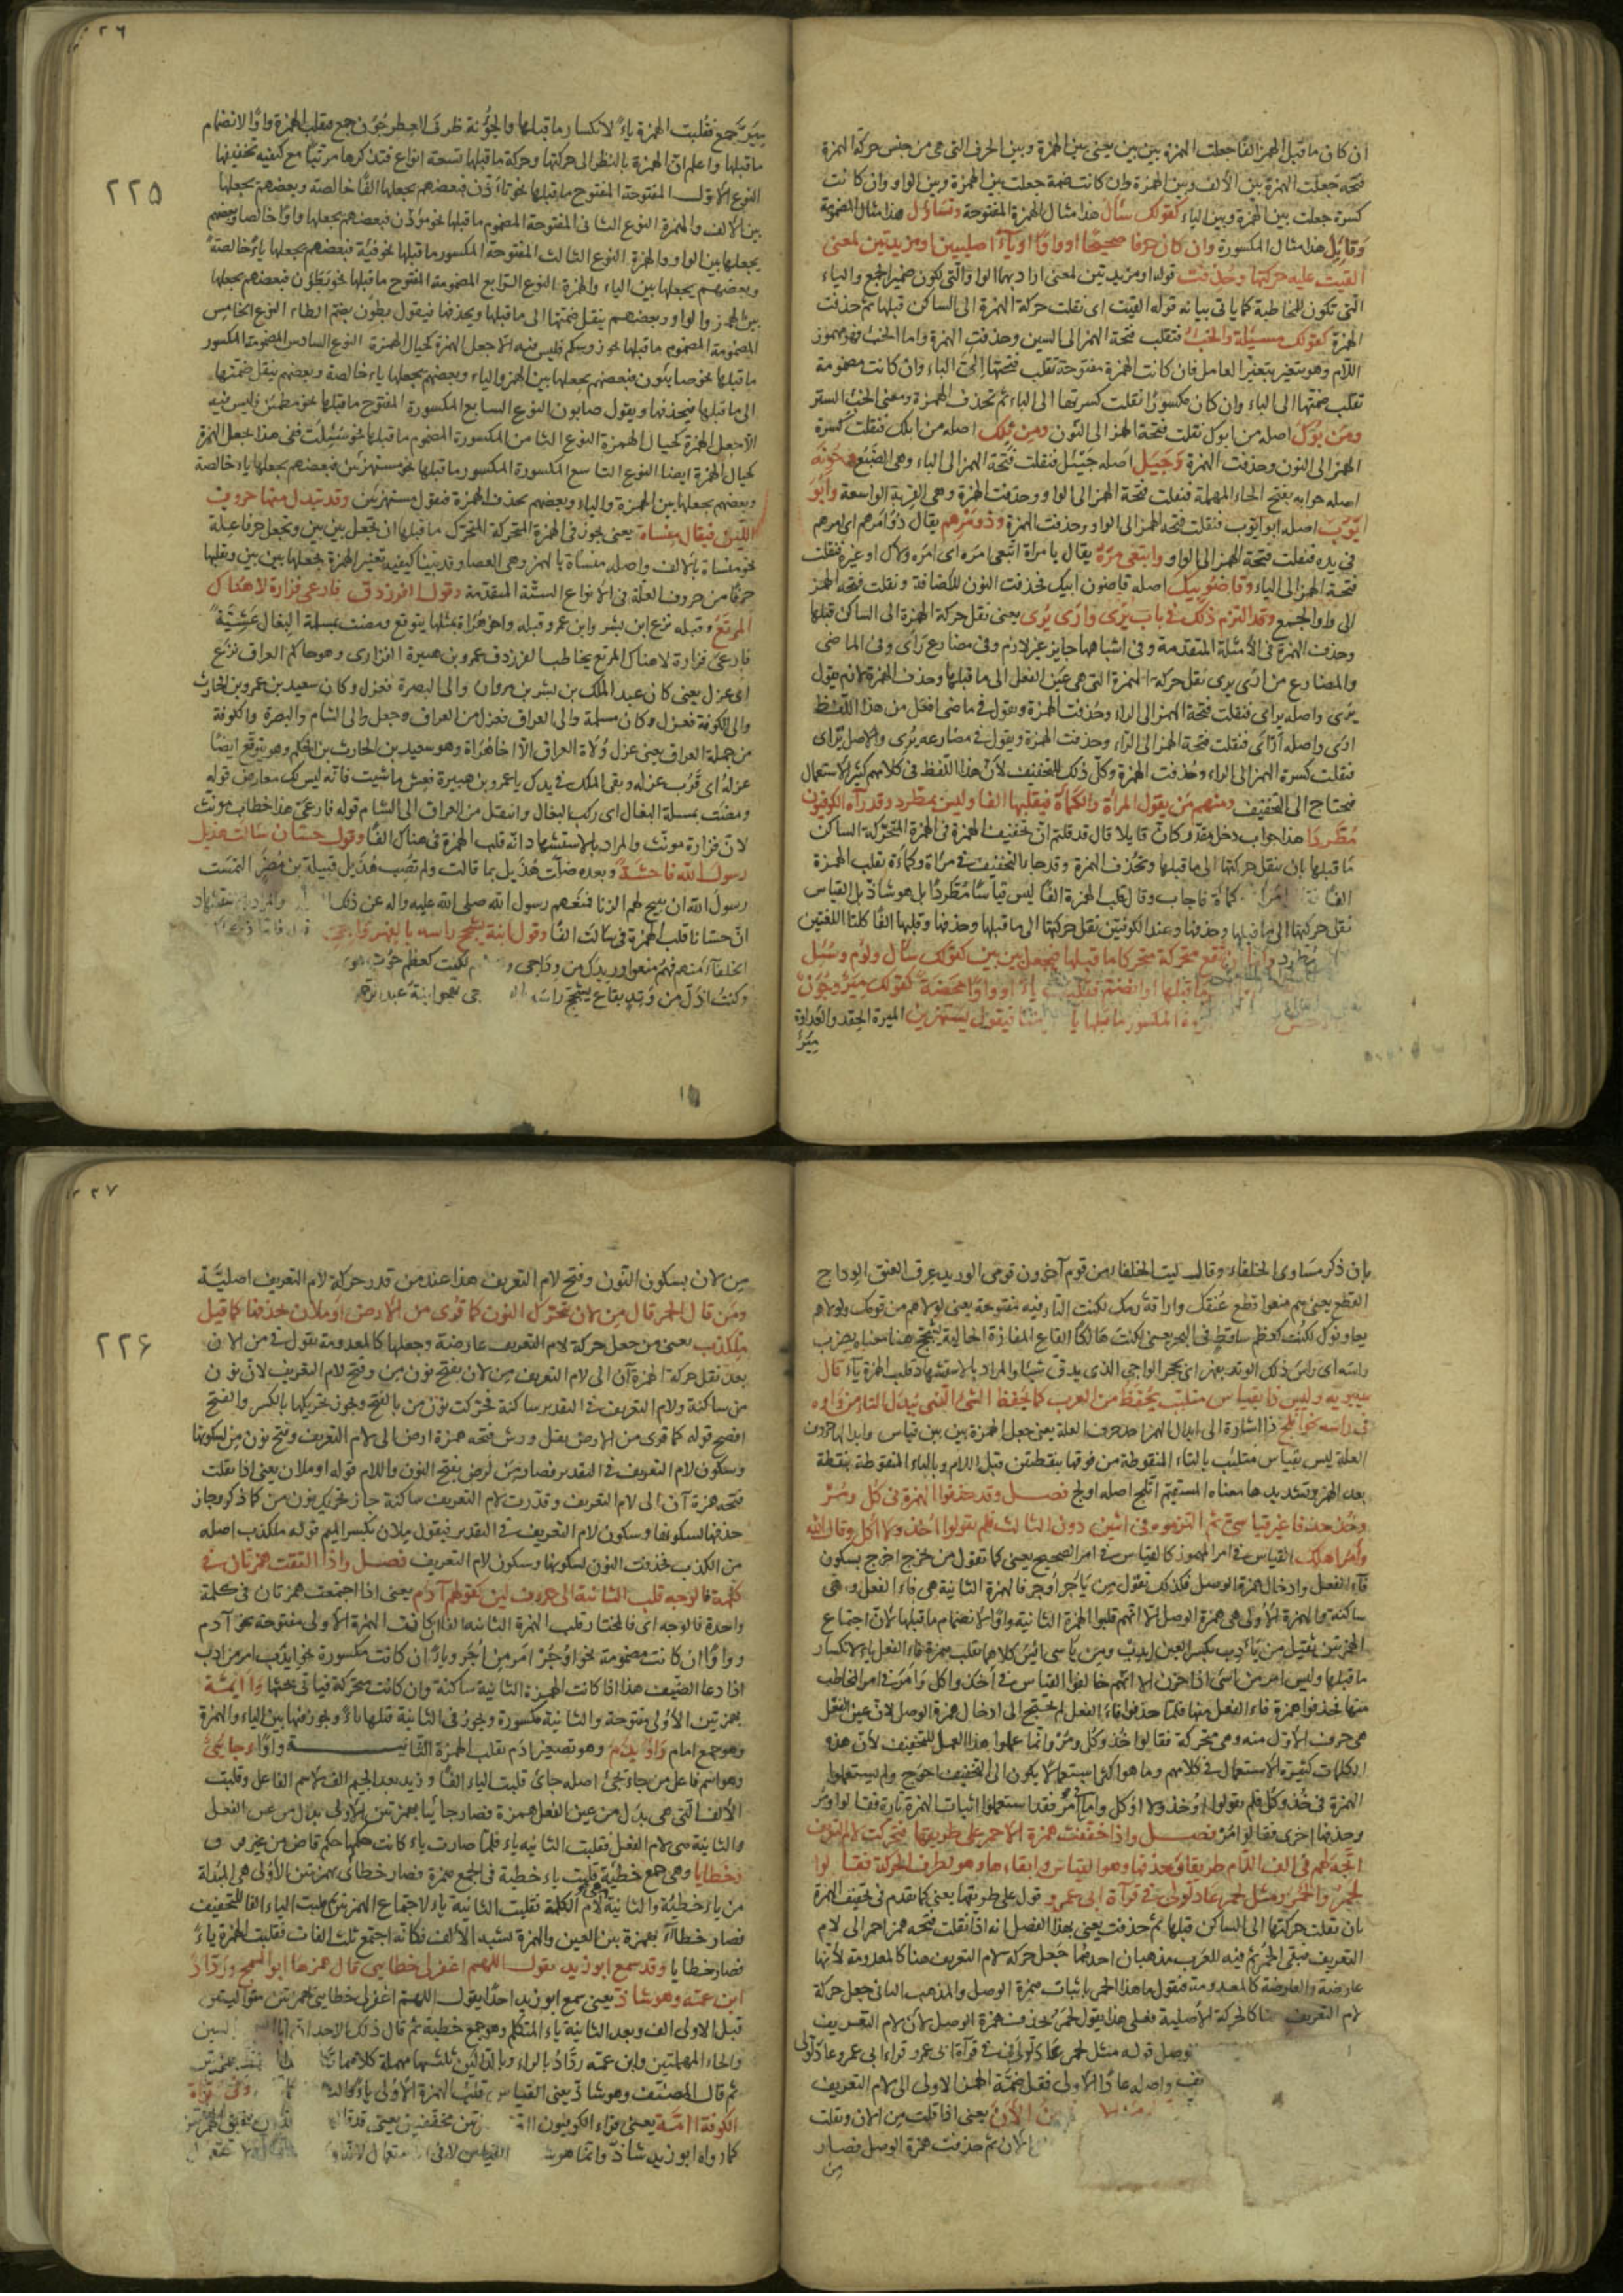 ان كان ما قبل الهمز الفا جعلت الهمزة بين بين يعنى بين الهمزة وبين الحرف التى هى من جنس حركة الهمزة
فتحة جعلت الهمزة بين الالف وبين الهمزة وان كانت ضمة جعلت بين الهمزة وبين الواو وان كانت
كسرة جعلت بين الهمزة وبين الياء كقولك سئال هذا مثال الهمزة المفتوحة وتساؤل هذا مثال المضمومة
وقايل هذا مثال المكسورة وان كان حرفا صحيحا او واوا او ياء اصليين او مزيدتين لمعنى
القيت عليه حركتها وحذفت قوله او مزيدتين لمعنى اراد بهما الواو التى تكون ضمير الجمع والياء
التى تكون للمخاطبة كما ياتى بيانه قوله القيت اى نقلت حركة الهمزة الى الساكن قبلها ثم حذفت
الهمزة كقولك مسئلة والخب فنقلت فتحة الهمز الى السين وحذفت الهمزة واما الخب فهو مهموز
اللام وهو يتغير بتغير العامل فان كانت الهمزة مفتوحة تقلب فتحتها الى الباء وان كانت مضمومة
تقلب ضمتها الى الباء وان كان مكسورا نقلت كسرتها الى الباء ثم تحذف الهمزة ومعنى الخب الستر
ومن بوك اصله من ابوك نقلت فتحة الهمز الى النون ومن بلك اصله من ابلك فنقلت كسرة
الهمز الى النون وحذفت الهمزة وجيل اصله جيئل فنقلت فتحة الهمز الى الياء وهى الضبع وحوبة
اصله حوابه بفتح الحاء المهملة فنقلت فتحة الهمز الى الواو وحذفت الهمزة وهى القربة الواسعة وابو
يوب اصله ابو ايوب فنقلت فتحة الهمز الى الواو وحذفت الهمزة وذو مرهم يقال ذو امرهم اى امرهم
فى يده فنقلت فتحة الهمز الى الواو وابتغى مره يقال يا مراة ابتغى امره اى امره
فتحة الهمز الى الياء وقاضو بيك اصله قاضون ابيك فحذفت النون للاضافة ونقلت فتحة الهمز
الى واو الجمع وقد التزم ذلك فى باب يرى وارى يرى يعنى نقل حركة الهمزة الى الساكن قبلها
وحذف الهمزة فى الامثلة المتقدمة وفى اشباهها جايز غير لازم وفى مضارع راى وفى الماضى
والمضارع من ارى يرى نقل حركة الهمزة التى هى عين الفعل الى ما قبلها وحذف الهمزة لازم يقول
يرى واصله يراى فنقلت فتحة الهمز الى الراء وحذفت الهمزة ويقول فى ماضى افعل من هذا اللفظ
ارى واصله اراى فنقلت فتحة الهمز الى الراء وحذفت الهمزة ويقول فى مضارعه يرى والاصل يراى
فنقلت كسرة الهمز الى الراء وحذفت الهمزة وكل ذلك للتخفيف لان هذا اللفظ فى كلامهم كثير الاستعمال
فيحتاج الى التخفيف ومنهم من يقول المراة والكماة فيقلبها الفا وليس بمطرد وقد رآه الكوفيون
مطردا هذا جواب دخل مقدر كان قايلا قال قد قلتم ان تخفيف الهمزة فى الهمزة المتحركة الساكن
ما قبلها بان ينقل حركتها الى ما قبلها وتحذف الهمزة وقد جا بالتخفيف فى مراة وكماة بقلب الهمزة
كماة فاجاب وقال قلب الهمزة الفا ليس قياسا مطردا بل هو شاذ بل القياس
نقل حركتها الى ما قبلها وحذفها وعند الكوفيين نقل حركتها الى ما قبلها وحذفها وقلبها الفا كلتا اللغتين
تقع متحركة متحركا ما قبلها فيجعل بين بين كقولك سال ولؤم وسئل
او واوا محضة كقولك مير وجون
المكسور ما قبلها فيقول يستهزين الميرة الحقد والعداوة
مير
٢٢٥
مير جمع فقلبت الهمزة ياء لانكسار ما قبلها والجونة ظرف العطر جون جمع فقلب الهمزة واوا لانضمام
ما قبلها واعلم ان الهمزة بالنظر الى حركتها وحركة ما قبلها تسعة انواع فنذكرها مرتبا مع كيفية تخفيفها
النوع الاول المفتوحة المفتوح ما قبلها نحو تاذن فبعضهم يجعلها الفا خالصة وبعضهم يجعلها
بين الالف والهمزة النوع الثانى المفتوحة المضموم ما قبلها نحو مؤذن فبعضهم يجعلها واوا خالصا وبعضهم
يجعلها بين الواو والهمزة النوع الثالث المفتوحة المكسور ما قبلها نحو فئة فبعضهم يجعلها ياء خالصة
وبعضهم يجعلها بين الياء والهمزة النوع الرابع المضمومة المفتوح ما قبلها نحو يطؤن فبعضهم يجعلها
بين الهمز والواو وبعضهم ينقل ضمتها الى ما قبلها ويحذفها فيقول يطون بضم الطاء النوع الخامس
المضمومة المضموم ما قبلها نحو رؤسكم فليس فيه الا جعل الهمزة كخيال الهمزة النوع السادس المضمومة المكسور
ما قبلها نحو صابئون فبعضهم يجعلها بين الهمز والياء وبعضهم يجعلها ياء خالصة وبعضهم ينقل ضمتها
الى ما قبلها فيحذفها ويقول صابون النوع السابع المكسورة المفتوح ما قبلها نحو مطمئن فليس فيه
الا جعل الهمزة كخيال الهمزة النوع الثامن المكسورة المضموم ما قبلها نحو سئلت ففى هذا جعل الهمزة
كخيال الهمزة ايضا النوع التاسع المكسورة المكسور ما قبلها نحو مستهزئين فبعضهم يجعلها ياء خالصة
وبعضهم يجعلها بين الهمزة والياء وبعضهم يحذف الهمزة فيقول مستهزين وقد تبدل منها حروف
اللين فيقال منساة يعنى يجوز فى الهمزة المتحركة المتحرك ما قبلها ان تجعل بين بين وتجعل حرفا علة
نحو منساة بالالف واصله منساة بالهمز وهى العصا وقد بينا كيفية تغير الهمزة بجعلها بين بين وبقلبها
حرفا من حروف العلة فى الانواع الستة المتقدمة وقول الفرزدق فارعى فزارة لا هناك
المرتع وقبله نزع ابن بشر وابن عمرو قبله واخو هراة بمثلها يتوقع ومضت بمسلمة البغال عشية
فارعى فزارة لا هناك المرتع يخاطب الفرزدق عمرو بن هبيرة الفزارى وهو حاكم العراق نزع
اى عزل يعنى كان عبد الملك بن بشر بن مروان والى البصرة فعزل وكان سعيد بن عمرو بن الحارث
والى الكوفة فعزل وكان مسلمة والى العراق فعزل من العراق وجعل والى الشام والبصرة والكوفة
من جملة العراق يعنى عزل ولاة العراق الا اخا هراة وهو سعيد بن الحارث بن الحكم وهو يتوقع ايضا
عزله اى قرب عزله وبقى الملك فى يدك يا عمرو بن هبيرة فعش ما شيت فانه ليس لك معارض قوله
ومضت بمسلمة البغال اى ركب البغال وانتقل من العراق الى الشام قوله فارعى هذا خطاب مونث
لان فزارة مونث والمراد بالاستشهاد انه قلب الهمزة فى هناك الفا وقول حسان سالت هذيل
رسول الله فاحشة وبعده ضلت هذيل بما قالت ولم تصب هذيل قبيلة من مضر التمست
رسول الله ان يبيح لهم الزنا فمنعهم رسول الله صلى الله عليه واله عن ذلك
ان حسانا قلب الهمزة فى سالت الفا وقول ابنه يشجج راسه بالفهر واجى
الخلفاء منهم فهم منعوا وريدك من وداجى لكنت كعظم حوت
وكنت اذل من وتد بقاع يشجج راسه
بان ذكر مساوى الخلفاء وقال ليت الخلفاء من قوم آخرون قومى الوريد عرق العنق الوداج
القطع يعنى هم منعوا قطع عنقك واراقة دمك لكنت التاء فيه مفتوحة يعنى لولا هم من قومك ولولا هم
لكنت كعظم ساقط فى البحر يعنى لكنت هالكا القاع المفازة الخالية يشجج هنا معناه يضرب
راسه اى راس ذلك الوتد بفهر اى بحجر الواجى الذى يدق شيئا والمراد بالاستشهاد قلب الهمزة ياء قال
سيبويه وليس ذا بقياس متلئب يحفظ من العرب كما يحفظ الشئ الذى يبدل التاء من واوه
فى راسه نحو اتلج ذا اشارة الى ابدال الهمز احد حرف العلة يعنى جعل الهمزة بين بين قياس وابدالها حروف
العلة ليس بقياس متلئب بالتاء المنقوطة من فوقها بنقطتين قبل اللام وبالباء المنقوطة بنقطة
بعد الهمز وتشديدها معناه المستقيم اتلج اصله اولج فصل وقد حذفوا الهمزة فى كل ومر
وخذ حذفا غير قياسى ثم التزموه فى اثنين دون الثالث فلم يقولوا اخذ ولا اكل وقال الله
وأمر اهلك القياس فى امر المهموز كالقياس فى امر الصحيح يعنى كما تقول من تخرج اخرج بسكون
فاء الفعل وادخال همزة الوصل فكذلك تقول من ياجر اوجر فالهمزة الثانية هى فاء الفعل وهى
ساكنة والهمزة الاولى هى همزة الوصل الا انهم قلبوا الهمزة الثانية واوا لانضمام ما قبلها لان اجتماع
الهمزتين ثقيل من يادب بكسر العين ايدب ومن ياسى ائس كلاهما بقلب همزة فاء الفعل ياء لانكسار
ما قبلها وليس امر من اسى اذا حزن الا انهم خالفوا القياس فى اخذ واكل وامر فى امر المخاطب
منها فحذفوا همزة فاء الفعل منها فلما حذفوا فاء الفعل لم يحتج الى ادخال همزة الوصل لان عين الفعل
هى حرف الاول منه وهى متحركة فقالوا خذ وكل ومر وانما عملوا هذا العمل للتخفيف لان هذه
الكلمات كثيرة الاستعمال فى كلامهم وما هو اكثر استعمالا يكون الى التخفيف احوج ولم يستعملوا
الهمزة فى خذ وكل فلم يقولوا اوخذ ولا اوكل واما فى مر فقد استعملوا اثبات الهمزة تارة فقالوا ومر
وحذفها اخرى فقالوا مر فصل واذا خففت همزة الاحمر على طريقها فتحركت لام التعريف
اتجه لهم فى الف اللام طريقان حذفها وهو القياس وابقاءها وهو لطرف الحركة فقالوا
لحمر والحمر ومثل لحمر عاد لولى فى قراة ابى عمرو قول على طريقها يعنى كما تقدم فى تخفيف الهمزة
بان نقلت حركتها الى الساكن قبلها ثم حذفت يعنى بهذا الفصل انه اذا نقلت فتحة همز احمر الى لام
التعريف فبقى الحمر ثم فيه للعرب مذهبان احدهما جعل حركة لام التعريف هنا كالمعدومة لانها
عارضة والعارضة كالمعدومة فنقول ما هذا الحمر باثبات همزة الوصل والمذهب الثانى جعل حركة
لام التعريف هنا كالحركة الاصلية فعلى هذا يقول لحمر بحذف همزة الوصل لان لام التعريف
توصل قوله مثل لحمر عاد لولى فى قراة ابى عمرو قراءة ابى عمرو وعاد لولى
واصله عادا الاولى فنقل ضمة الهمز الاولى الى لام التعريف
من الان يعنى اذا قلت من الان ونقلت
الان ثم حذفت همزة الوصل فصار
من
٢٢٦
من لان بسكون النون وفتح لام التعريف هذا عند من قدر حركة لام التعريف اصلية
ومن قال الحمر قال من لان بتحريك النون كما قرى من لارض او ملان بحذفها كما قيل
ملكذب يعنى من جعل حركة لام التعريف عارضة وجعلها كالمعدومة يقول فى من الان
بعد نقل حركة الهمزة آن الى لام التعريف من لان بفتح نون من وفتح لام التعريف لان نون
من ساكنة ولام التعريف فى التقدير ساكنة فحركت نون من بالفتح ويجوز تحريكها بالكسر والفتح
افصح قوله كما قرى من لارض بنقل ورش فتحة همزة ارض الى لام التعريف وفتح نون من لسكونها
وسكون لام التعريف فى التقدير فصار من لرض بفتح النون واللام قوله او ملان يعنى اذا نقلت
فتحة همزة آن الى لام التعريف وقدرت لام التعريف ساكنة جاز تحريك نون من كما ذكر وجاز
حذفها لسكونها وسكون لام التعريف فى التقدير فيقول ملان بكسر الميم قوله ملكذب اصله
من الكذب فحذفت النون لسكونها وسكون لام التعريف فصل واذا التقت همزتان فى
كلمة فالوجه قلب الثانية الى حروف لين كقولهم آدم يعنى اذا اجتمعت همزتان فى كلمة
واحدة فالوجه اى فالمختار قلب الهمزة الثانية الفا ان كانت الهمزة الاولى مفتوحة نحو آدم
وواوا ان كانت مضمومة نحو اوجر امر من اجر وياء ان كانت مكسورة نحو ايدب امر من ادب
اذا دعا الضيف هذا اذا كانت الهمزة الثانية ساكنة وان كانت متحركة فياتى بحثها وايمة
بهمزتين الاولى مفتوحة والثانية مكسورة ويجوز فى الثانية قلبها ياء ويجوز فيها بين الياء والهمزة
وهو جمع امام واويدم وهو تصغير ادم بقلب الهمزة الثانية واوا وجايى
وهو اسم فاعل من جاء يجئ اصله جاى قلبت الياء الفا وزيد بعد الجيم الف لاسم الفاعل وقلبت
الالف التى هى بدل من عين الفعل همزة فصار جائيا بهمزتين الاولى بدل من عين الفعل
والثانية هى لام الفعل فقلبت الثانية ياء فلما صارت ياء كانت حكمها حكم قاض من غير فرق
وخطايا وهى جمع خطيئة قلبت ياء خطيئة فى الجمع همزة فصار خطائ بهمزتين الاولى هى المبدلة
من ياء خطيئة والثانية لام الكلمة فقلبت الثانية ياء لاجتماع الهمزتين ثم قلبت الياء الفا للتخفيف
فصار خطاآ بهمزة بين العين والهمزة تشبه الالف فكانه اجتمع ثلث الفات فقلبت الهمزة ياء
فصار خطايا وقد سمع ابو زيد يقول اللهم اغفر لى خطائى قال همزها ابو السمح ورداد
ابن عمه وهو شاذ يعنى سمع ابو زيد احدا يقول اللهم اغفر لى خطائى بهمزتين متواليتين
قبل الاولى الف وبعد الثانية ياء المتكلم وهو جمع خطيئة ثم قال ذلك
والحاء المهملتين وابن عمه رداد بالراء وبدالين ثلثتها مهملة كلاهما
ثم قال المصنف وهو شاذ يعنى القياس قلب الهمزة الاولى ياء وفى قراة
الكوفة ائمة يعنى قراء الكوفيون
كما رواه ابو زيد شاذ وانما هو